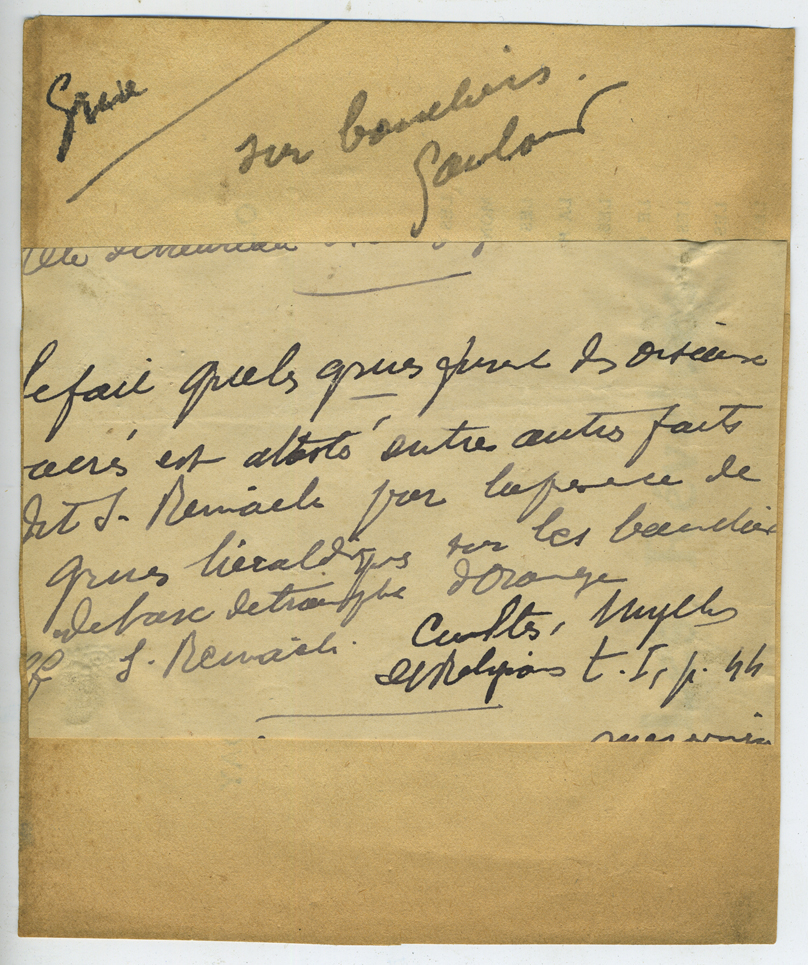 Grue
sur boucliers.
Gaulois
le fait que les grues furent des oiseaux
sacrés est attesté entre autres faits
dit S. Reinach par la présence de
grues héraldiques sur les boucliers
de l'arc de triomphe d'Orange
cf S. Reinach. Cultes, Mythes
et Religions t. I, p. 44